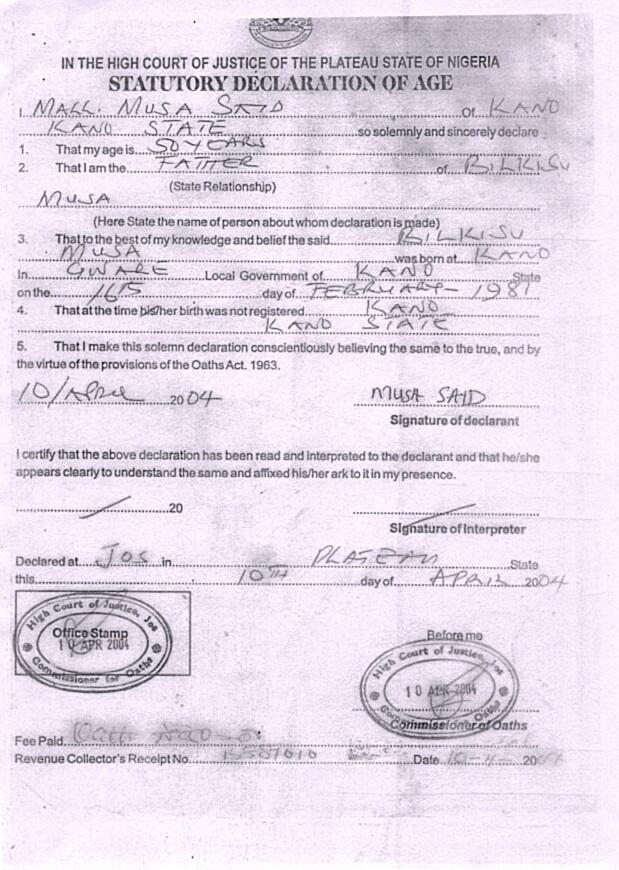 IN THE HIGH COURT OF JUSTICE OF THE PLATEAU STATE OF NIGERIA
STATUTORY DECLARATION OF AGE
I, MALL. MUSA SAID Of KANO
KANO STATE so solemnly and sincerely declare
1. That my age is 50 YEARS
2. That I am the FATTER of BILKISU
(State Relationship)
MUSA
(Here State the name of person about whom declaration is made)
3. That to the best of my knowledge and belief the said BILKISU
MUSA was born at KANO
In GWALE Local Government of KANO State
on the 16 day of FEBRUARY - 1981
4. That at the time his/her birth was not registered KANO
KANO STATE
5. That I make this solemn declaration conscientiously believing the same to the true, and by
the virtue of the provisions of the Oaths Act. 1963.
10/APRIL 2004 MUSA SAID
Signature of declarant
I certify that the above declaration has been read and interpreted to the declarant and that he/she
appears clearly to understand the same and affixed his/her ark to it in my presence.
20
Signature of Interpreter
Declared at JOS in PLATEAU State
this 10TH day of APRIL 2004
High Court of Justice, Jos
Office Stamp
10 APR 2004
Commissioner for Oaths
Before me
High Court of Justice, Jos
10 APR 2004
Commissioner of Oaths
Fee Paid Oath
Revenue Collector's Receipt No. Date 10-4- 2004